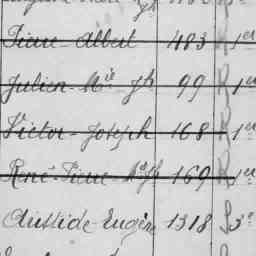 Pierre-Albert 483 R 1er
Julien-Mie Jh 99 R 1er
Victor-Joseph 168 R 1er
René-Pierre 169 R 1er
Aristide-Eugène 1318 S 3e